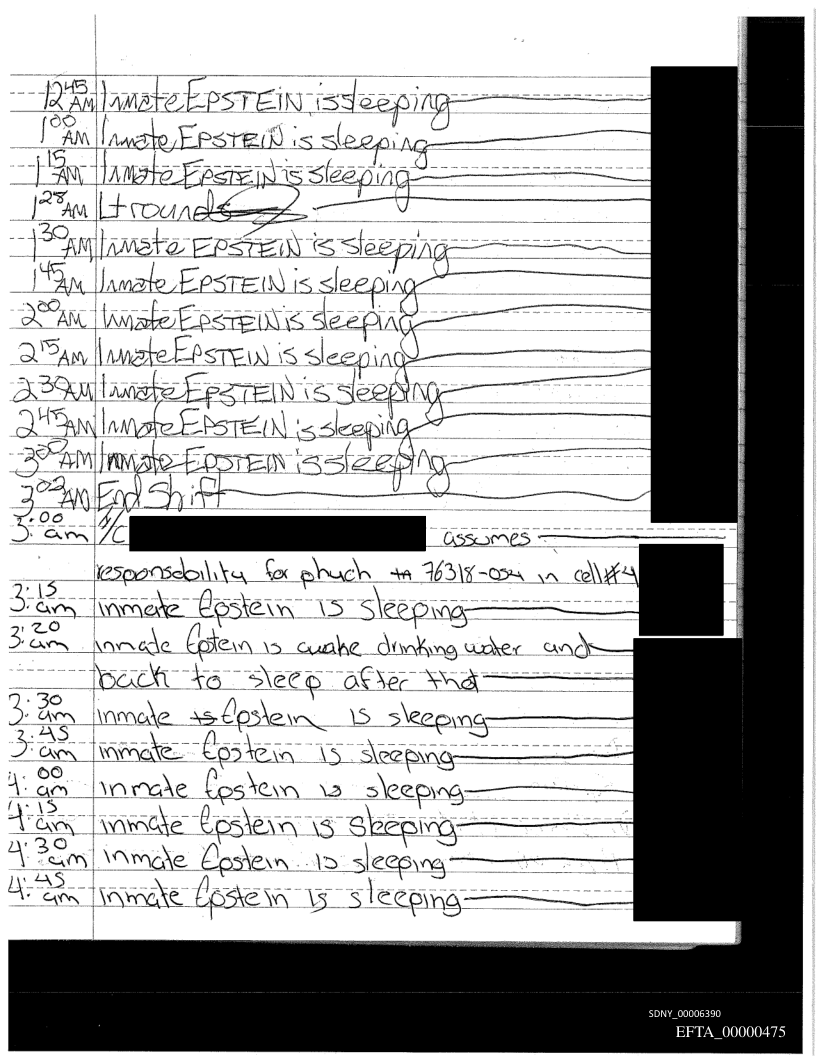 12 45 AM Inmate EPSTEIN is sleeping
1 00 AM Inmate EPSTEIN is sleeping
1 15 AM Inmate EPSTEIN is sleeping
1 28 AM Lt rounds
1 30 AM Inmate EPSTEIN is sleeping
1 45 AM Inmate EPSTEIN is sleeping
2 00 AM Inmate EPSTEIN is sleeping
2 15 AM Inmate EPSTEIN is sleeping
2 30 AM Inmate EPSTEIN is sleeping
2 45 AM Inmate EPSTEIN is sleeping
3 00 AM Inmate EPSTEIN is sleeping
3 02 AM End Shift
3:00 am I/C assumes
responsebility for phuch 76318-054 in cell#4
3:15 am inmate Epstein is sleeping
3:20 am inmate Eptein is awake drinking water and
back to sleep after that
3:30 am inmate Epstein is sleeping
3:45 am inmate Epstein is sleeping
4:00 am inmate Epstein is sleeping
4:15 am inmate Epstein is sleeping
4:30 am inmate Epstein is sleeping
4:45 am inmate Epstein is sleeping
SDNY_00006390
EFTA_00000475